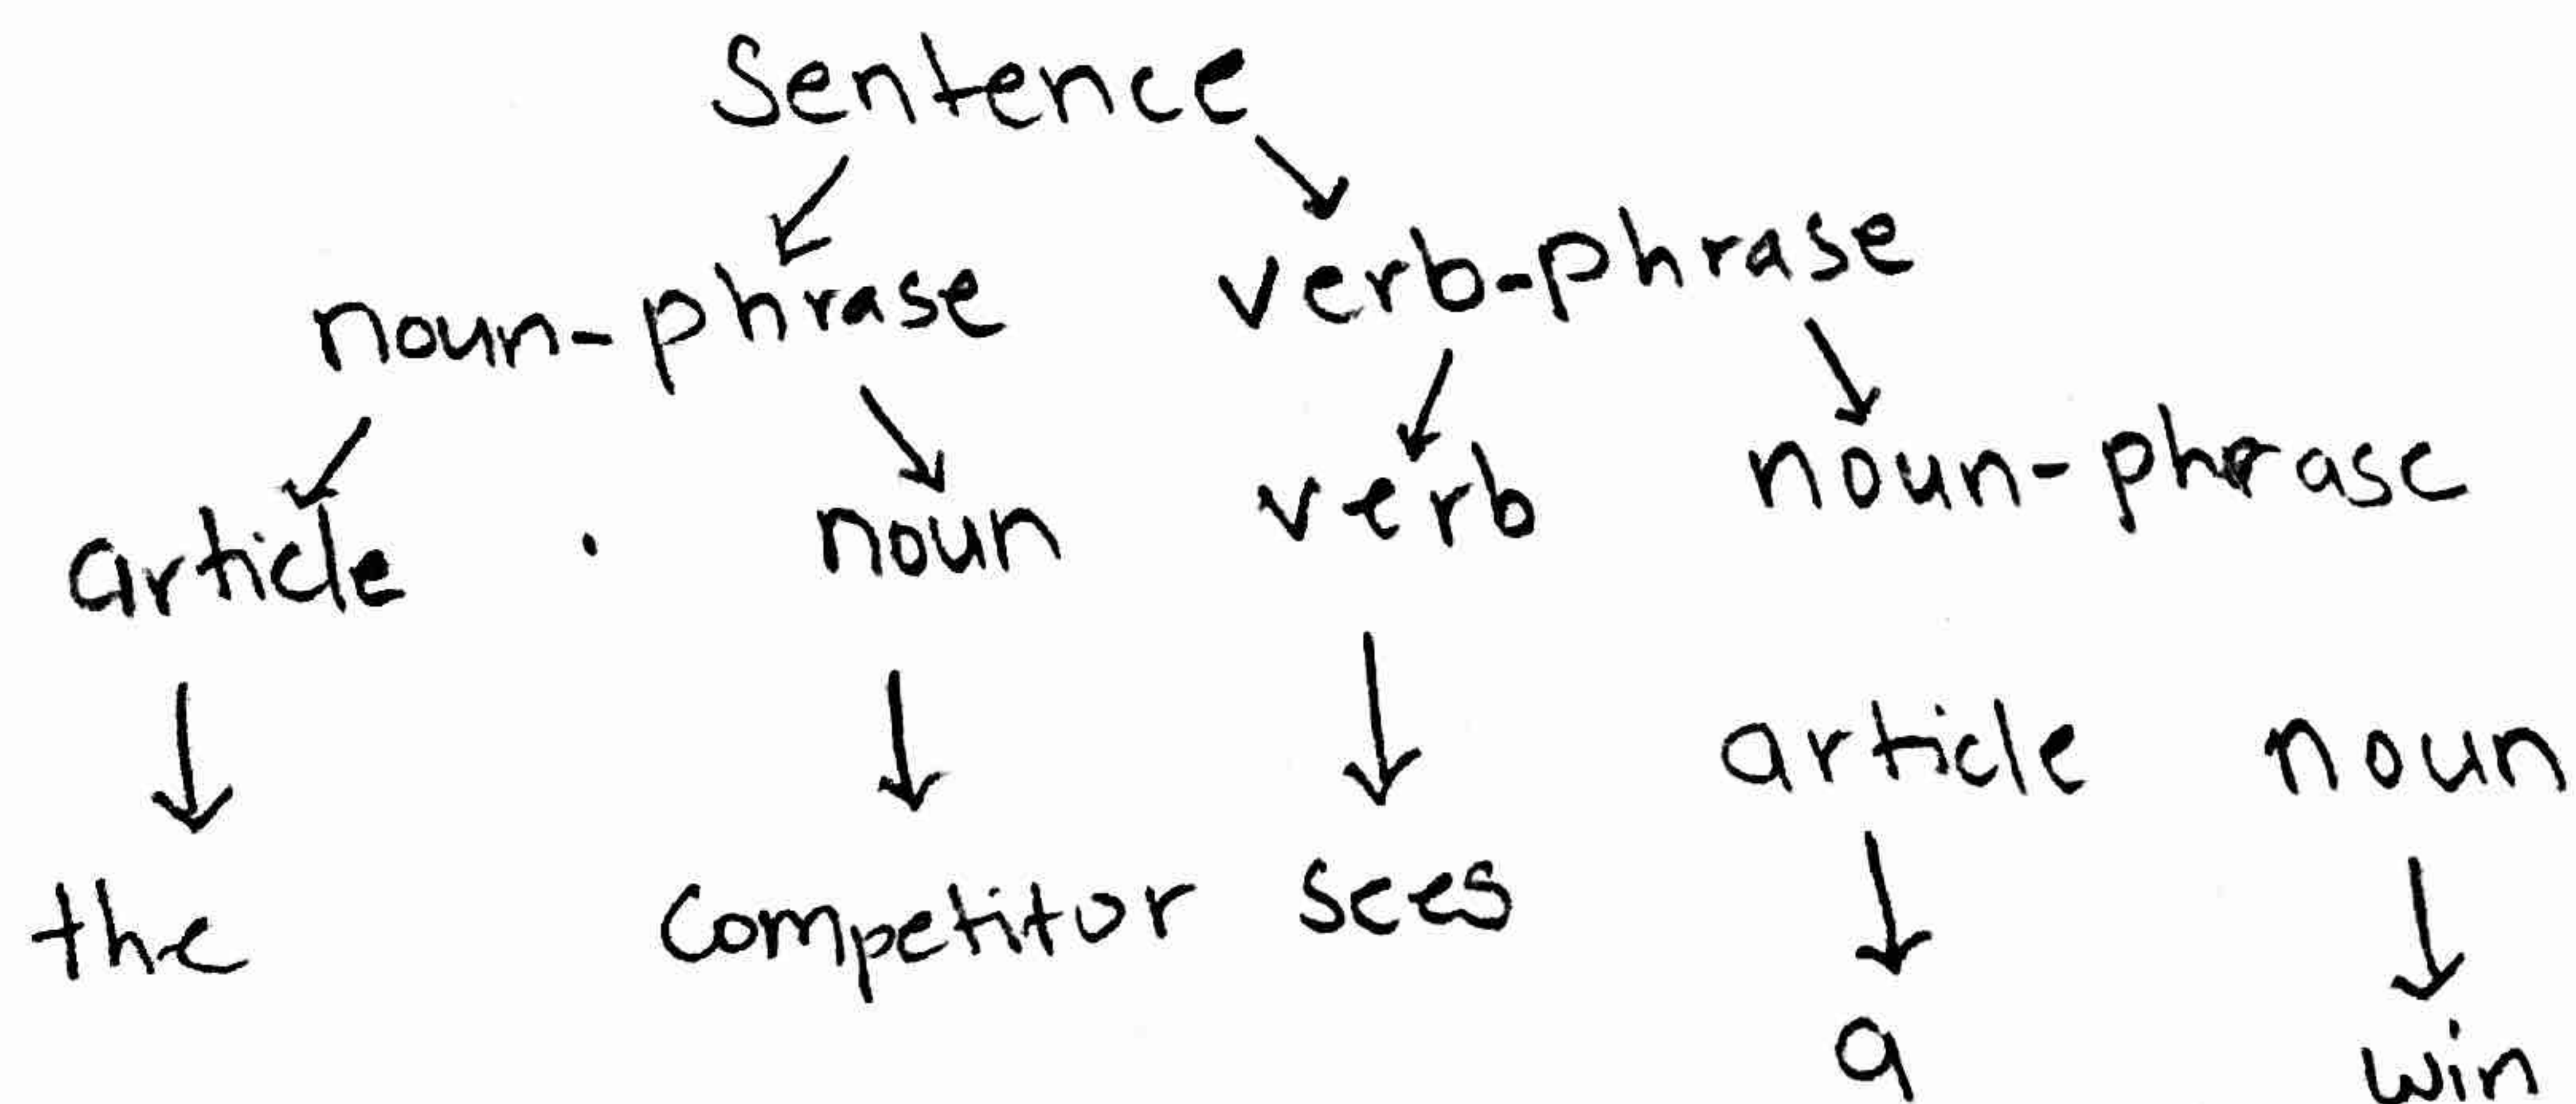 Sentence
noun-phrase verb-phrase
article noun verb noun-phrase
article noun
the competitor sees
a win